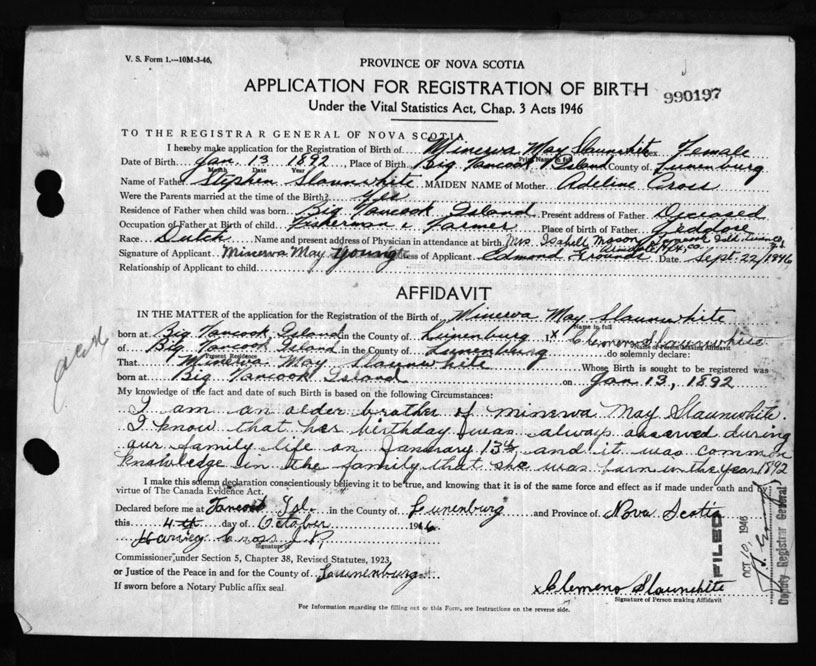 V. S. Form 1.—10M-3-46,
PROVINCE OF NOVA SCOTIA
APPLICATION FOR REGISTRATION OF BIRTH
990197
Under the Vital Statistics Act, Chap. 3 Acts 1946
TO THE REGISTRAR GENERAL OF NOVA SCOTIA,
I hereby make application for the Registration of Birth of Minerva May Slaunwhite Sex Female
Print Name in full
Date of Birth Jan. 13 1892, Place of Birth Big Tancook Island County of Lunenburg
Month Date Year
Name of Father Stephen Slaunwhite MAIDEN NAME of Mother Adeline Cross
Were the Parents married at the time of the Birth? Yes
Residence of Father when child was born Big Tancook Island Present address of Father Deceased
Occupation of Father at Birth of child Fisherman & Farmer Place of birth of Father Jeddore
Race Dutch Name and present address of Physician in attendance at birth Mrs. Isabell Mason
Signature of Applicant Minerva May Young Witness of Applicant Edmond Grounds Date Sept. 22/1946
Relationship of Applicant to child
AFFIDAVIT
IN THE MATTER of the application for the Registration of the Birth of Minerva May Slaunwhite
Name in full
born at Big Tancook Island in the County of Lunenburg I x Clemens Slaunwhite
of Big Tancook Island in the County of Lunenburg do solemnly declare:
Present Residence
That Minerva May Slaunwhite Whose Birth is sought to be registered was
born at Big Tancook Island on Jan 13, 1892
My knowledge of the fact and date of such Birth is based on the following Circumstances:
I am an older brother of Minerva May Slaunwhite.
I know that her birthday was always observed during
our family life on January 13th, and it was common
knowledge in the family that she was born in the year 1892
I make this solemn declaration conscientiously believing it to be true, and knowing that it is of the same force and effect as if made under oath and by
virtue of The Canada Evidence Act.
Declared before me at Tancook Isl. in the County of Lunenburg and Province of Nova Scotia
this 4th day of October 1946
Harvey Cross J.P.
Signature
Commissioner under Section 5, Chapter 38, Revised Statutes, 1923,
or Justice of the Peace in and for the County of Lunenburg
If sworn before a Notary Public affix seal.
x Clemens Slaunwhite
Signature of Person making Affidavit
For Information regarding the filling out of this Form, see Instructions on the reverse side.
FILED
OCT 10, 1946
Deputy Registrar General